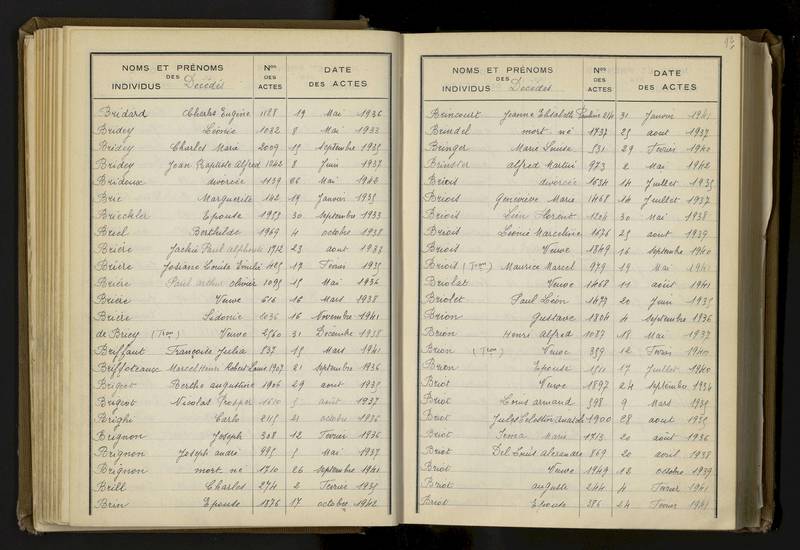 NOMS ET PRÉNOMS Nos DATE
DES DES
INDIVIDUS Décédés ACTES DES ACTES
Bridard Charles Eugène 1128 19 Mai 1936
Bridey Léonie 1032 8 Mai 1933
Bridey Charles Marie 2009 15 Septembre 1935
Bridey Jean Baptiste Alfred 1242 8 Juin 1937
Bridoux divorcée 1139 06 Mai 1940
Brie Marguerite 142 19 Janvier 1935
Brieckler Epouse 1953 30 Septembre 1933
Briel Berthilde 1969 4 octobre 1938
Brière Jackie Paul alphonse 1712 23 aout
Brière Josiane Louise Emilie 485 17 Février 1935
Brière Paul arthur olivier 1095 15 Mai 1936
Brière Veuve 616 16 Mars 1938
Brière Sidonie 2036 16 Novembre 1941
de Briey (Tron) Veuve 2560 31 Décembre 1938
Briffaut Françoise Julia 837 15 Mars 1941
Briffoteaux Marcel Henri Robert Louis 1907 21 septembre 1936
Brigeot Berthe augustine 1906 29 aout 1935
Brigeot Nicolas Prosper 1610 5 août 1937
Brighi Carlo 2115 21 octobre 1936
Brignon Joseph 308 12 Février 1936
Brignon Joseph andré 995 5 Mai 1937
Brignon mort né 1710 26 septembre 1941
Brill Charles 274 2 Février 1935
Brin Epouse 1876 17 octobre 1942
NOMS ET PRÉNOMS Nos DATE
DES DES
INDIVIDUS Décédés ACTES DES ACTES
Brincourt Jeanne Elisabeth Pauline 214 31 Janvier 1941
Brindel mort né 1737 25 aout 1937
Bringer Marie Louise 531 29 Février 1940
Brinster alfred Martin 973 2 Mai 1942
Briois divorcée 1634 14 Juillet 1935
Briois Geneviève Marie 1468 14 Juillet 1937
Briois Léon Florent 1204 30 Mai 1938
Briois Léonie Marceline 1676 25 aout 1939
Briois Veuve 1849 16 septembre 1940
Briois (Tron) Maurice Marcel 979 19 Mai 1941
Briolat Veuve 1468 11 aout 1941
Briolet Paul Léon 1479 20 Juin 1935
Brion Gustave 1804 4 septembre 1936
Brion Henri alfred 1087 18 Mai 1937
Brion (Tron) Veuve 359 12 Février 1940
Brion Epouse 1511 17 Juillet 1940
Briot Veuve 1897 24 septembre 1934
Briot Louis armand 598 9 Mars 1935
Briot Jules Celestin Anatole 1900 28 aout 1935
Briot Irma Marie 1713 20 août 1936
Briot Del Louis Alexandre 869 20 avril 1938
Briot Veuve 1949 18 octobre 1939
Briot auguste 244 4 Février 1941
Briot Epouse 386 24 Février 1941